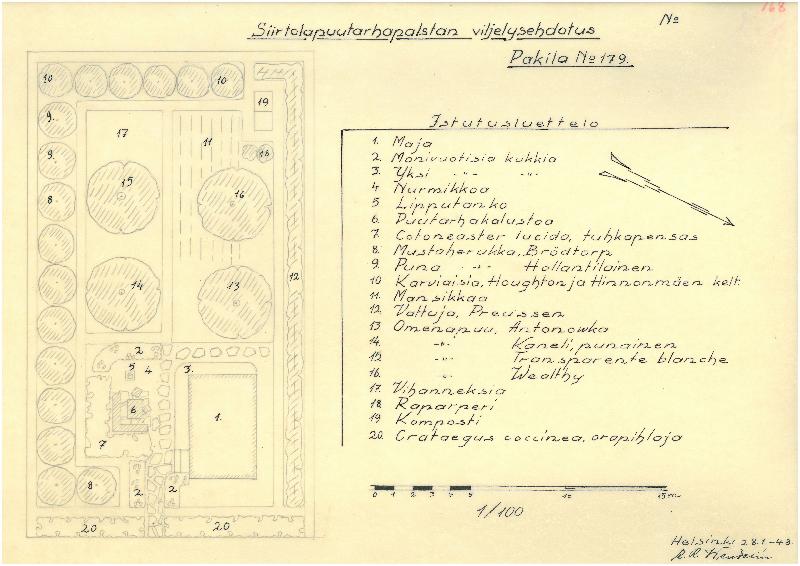 168
Siirtolapuutarhapalstan viljelysehdotus
No
Pakila No 179.
Istutusluettelo
1. Maja
2. Monivuotisia kukkia
3. Yksi -"- -"-
4. Nurmikkoa
5. Lipputanko
6. Puutarhakalustoa
7. Cotoneaster lucida, tuhkapensas
8. Mustaherukka, Brödtorp
9. Puna -"- Hollantilainen
10 Karviaisia, Houghton ja Hinnonmäen kelt.
11. Mansikkaa
12. Vattuja, Preussen
13 Omenapuu, Antonowka
14. -"- Kaneli, punainen
15. -"- Transparente blanche
16. -"- Wealthy
17. Vihanneksia
18. Raparperi
19 Komposti
20. Crataegus coccinea, orapihlaja
10
10
19
9.
17
11
9.
18
15
16
8
12
14
13
2
5
4
3.
6
1.
7
8
2
2
20
20
0 1 2 3 4 5 10 15 m
1/100
Helsinki 28.1-43.